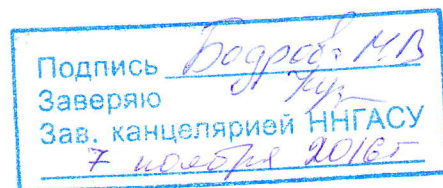 Подпись Бодрова М В
Заверяю
Зав. канцелярией ННГАСУ
7 ноября 2016г